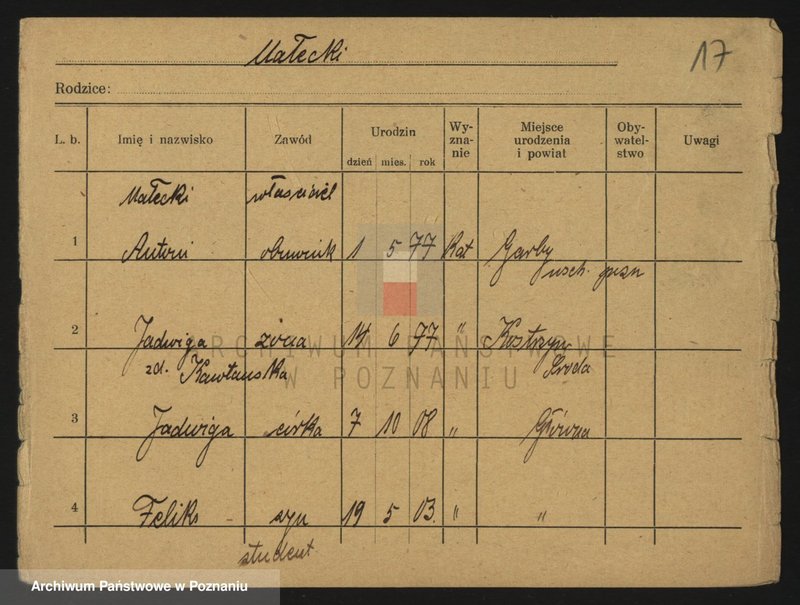 Małecki
17
Rodzice:
L. b. Imię i nazwisko Zawód Urodzin Wy-zna-nie Miejsce urodzenia i powiat Oby-watel-stwo Uwagi
dzień mies. rok
Małecki właściciel
1 Antoni obuwnik 1 5 77 Kat Garby
wsch. pozn
2 Jadwiga żona 14 6 77 " Kostrzyn
zd. Kawłańska Środa
3 Jadwiga córka 7 10 08 " Główna
4 Feliks - syn 19 5 03. " "
student
ARCHIWUM PAŃSTWOWE
W POZNANIU
Archiwum Państwowe w Poznaniu